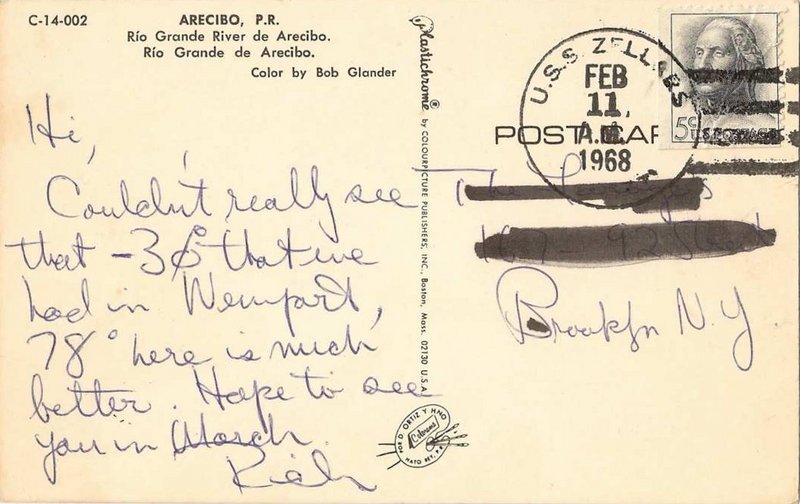 C-14-002
ARECIBO, P.R.
Río Grande River de Arecibo.
Río Grande de Arecibo.
Color by Bob Glander
Plastichrome® by COLOURPICTURE PUBLISHERS, INC., Boston, Mass. 02130 U.S.A.
U.S.S. ZELLARS
FEB
11
A.M.
1968
5¢ U.S. POSTAGE
POST CAR
Hi,
Couldn't really see
that -30° that we
had in Newport,
78° here is much
better. Hope to see
you in March.
Rich
The
92 Street
Brooklyn N.Y
POR D. ORTIZ Y HNO
Colorama
HATO REY, P.R.